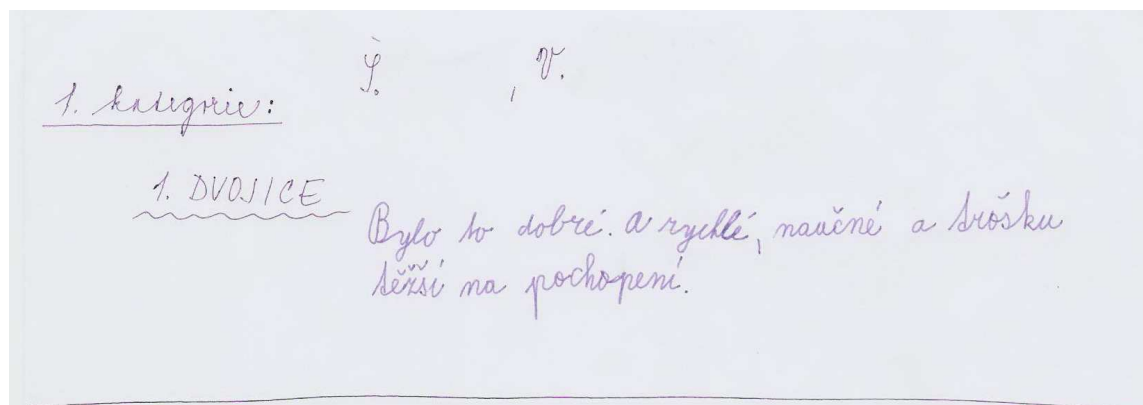 Š. , V.
1. kategorie:
1. DVOJICE
Bylo to dobré. a rychlé, naučné a tróšku
těžší na pochopení.